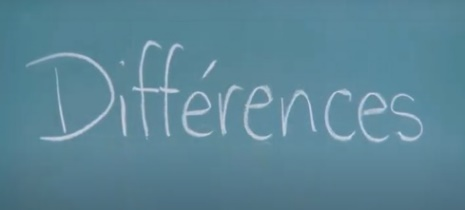 Différences